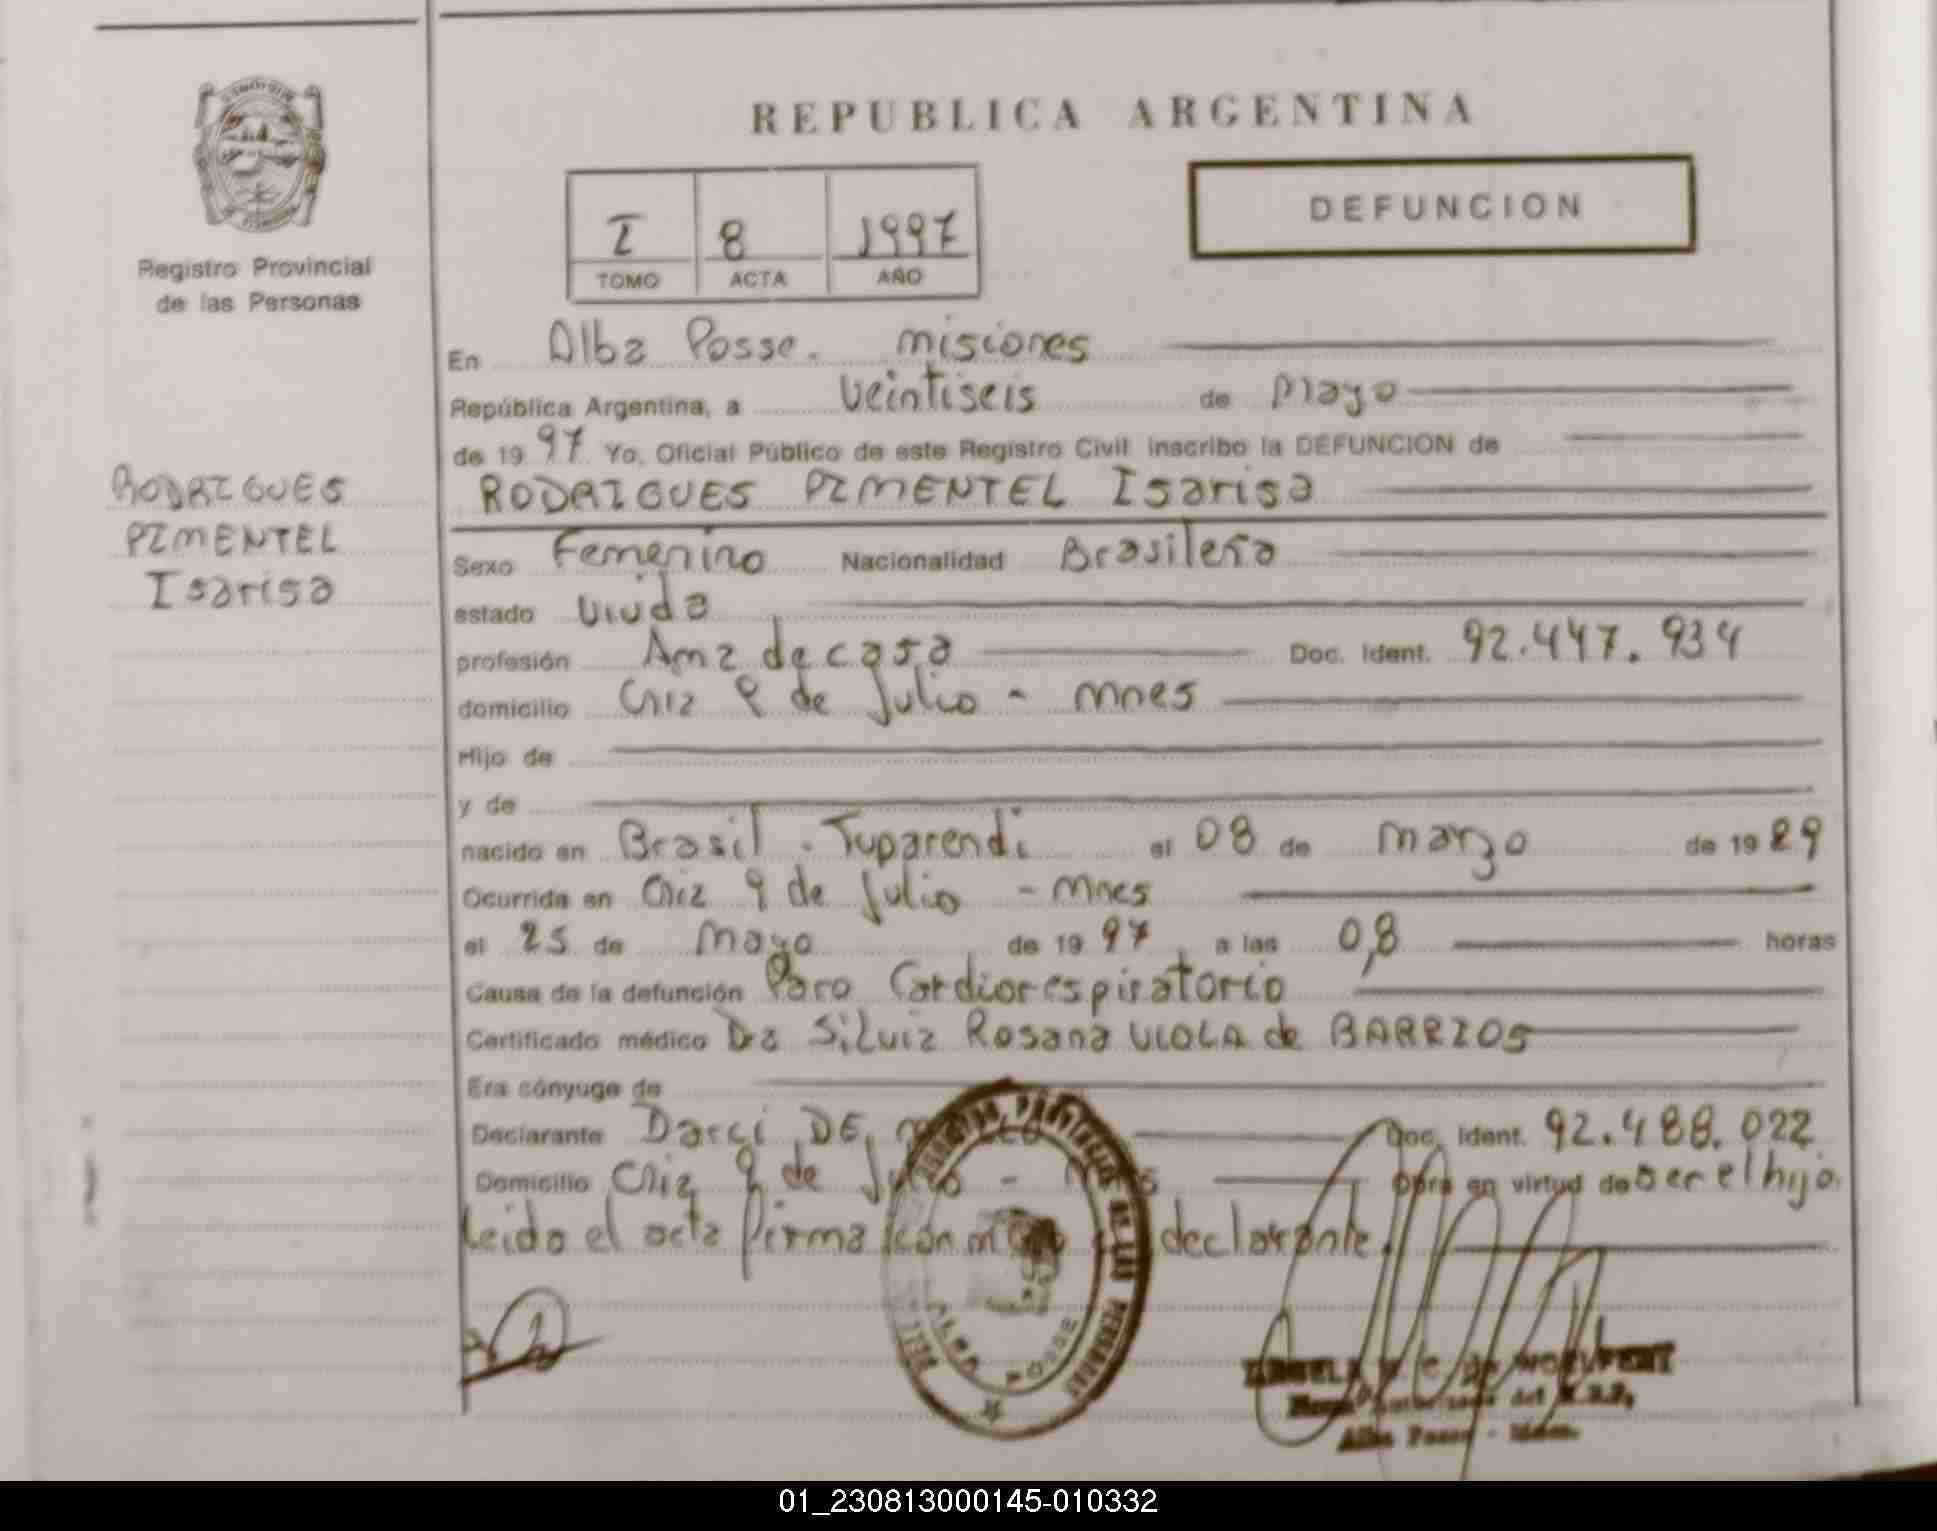 REPUBLICA ARGENTINA
DEFUNCION
I 8 1997
TOMO ACTA AÑO
Registro Provincial
de las Personas
RODRIGUES
PIMENTEL
Isarisa
En Alba Posse. misiones
República Argentina, a veintiseis de mayo
de 1997 Yo, Oficial Público de este Registro Civil inscribo la DEFUNCION de
RODRIGUES PIMENTEL Isarisa
Sexo Femenino Nacionalidad Brasileña
estado viuda
profesión Ama de casa Doc. Ident. 92.447.934
domicilio 9 de Julio - mnes
Hijo de
y de
nacido en Brasil - Tuparendi el 08 de marzo de 1929
Ocurrida en 9 de Julio - mnes
el 25 de mayo de 1997 a las 0,8 horas
Causa de la defunción Paro Cardiorespiratorio
Certificado médico Dra Silvia Rosana VIOLA de BARRIOS
Era cónyuge de
Declarante Darci DE Doc. Ident. 92.488.022
Domicilio 9 de Julio - Obra en virtud de ser el hijo.
Leido el acta firma con declarante.
ALBA POSSE
Alba Posse - Mnes.
01_230813000145-010332